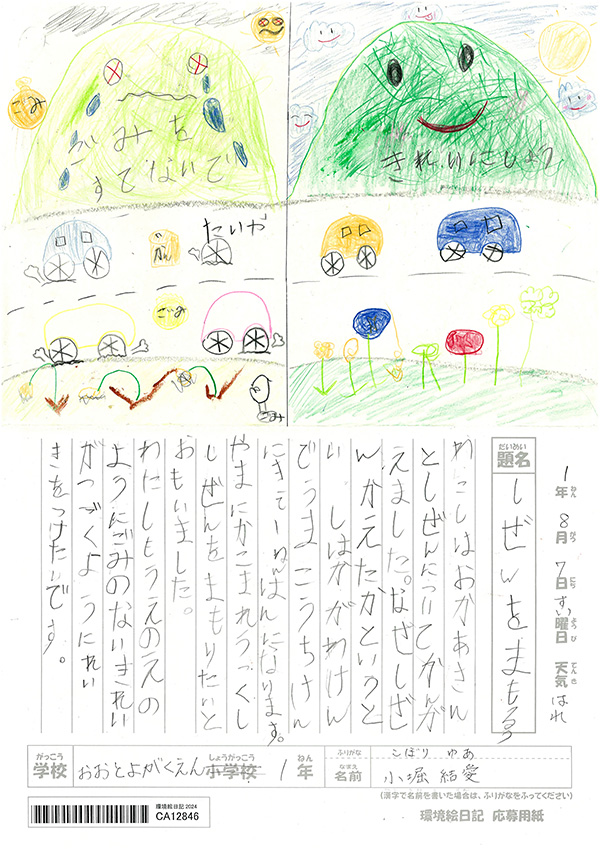 ごみ
ごみを
すてないで
きれいにしよう
たいや
かん
ごみ
ごみ
1年 8月 7日 すい曜日 天気 はれ
ねん がつ にち ようび てんき
だいめい
題名 しぜんをまもろう
わたしはおかあさん
としぜんについてかんが
えました。なぜしぜ
んかえたかというと
わたしはかがわけん
でうまこうちけん
にきて一ねんはんになります。
やまにかこまれうつくし
しぜんをまもりたいと
おもいました。
わたしもうえのえの
ようにごみのないきれい
がつづくように
きをつけたいです。
がっこう しょうがっこう ねん
学校 おおとよがくえん 小学校 1年
ふりがな こぼり ゆあ
なまえ
名前 小堀 結愛
(漢字で名前を書いた場合は、ふりがなをふってください)
環境絵日記 2024
CA12846
環境絵日記 応募用紙